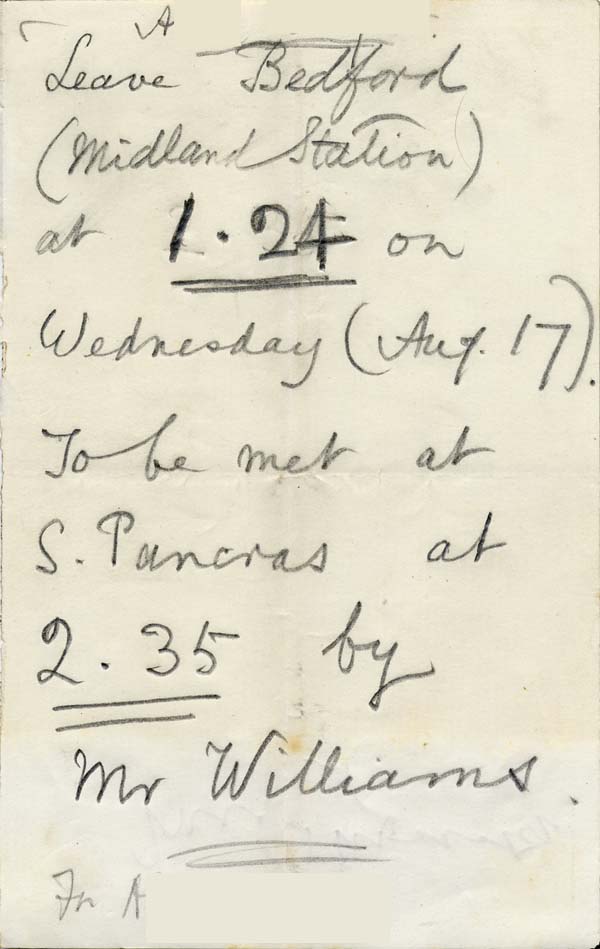 A
Leave Bedford
(Midland Station)
at 1.24 on
Wednesday (Aug. 17).
To be met at
S. Pancras at
2.35 by
Mr Williams.
For A